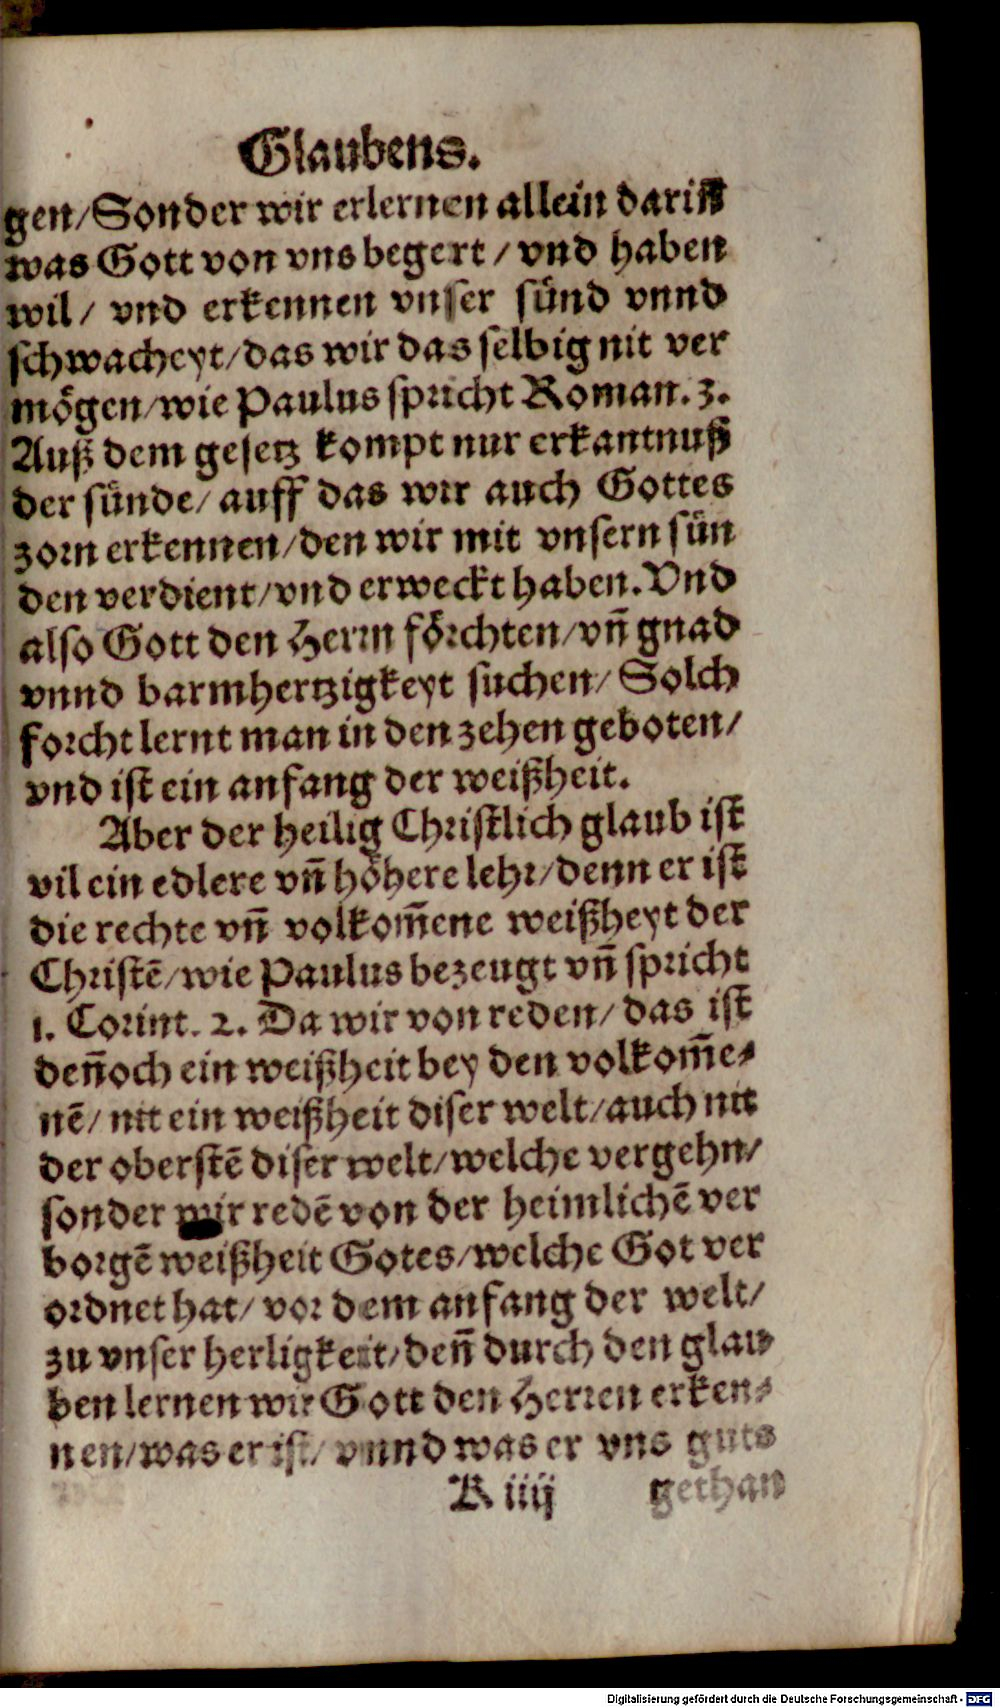 Glaubens.
gen/Sonder wir erlernen allein dariñ
was Gott von vns begert / vnd haben
wil / vnd erkennen vnser sünd vnnd
schwacheyt/das wir das selbig nit ver
mögen/wie Paulus spricht Roman. 3.
Auß dem gesetz kompt nur erkantnuß
der sünde/ auff das wir auch Gottes
zorn erkennen/den wir mit vnsern sün
den verdient/vnd erweckt haben. Vnd
also Gott den Herrn förchten/vñ gnad
vnnd barmhertzigkeyt suchen/ Solch
forcht lernt man in den zehen geboten/
vnd ist ein anfang der weißheit.
Aber der heilig Christlich glaub ist
vil ein edlere vñ höhere lehr/denn er ist
die rechte vñ volkom̃ene weißheyt der
Christē/wie Paulus bezeugt vñ spricht
1. Corint. 2. Da wir von reden/ das ist
deñoch ein weißheit bey den volkom̃e-
nē/ nit ein weißheit diser welt/auch nit
der oberstē diser welt/welche vergehn/
sonder wir redē von der heimlichē ver
borgē weißheit Gotes/welche Got ver
ordnet hat/ vor dem anfang der welt/
zu vnser herligkeit/deñ durch den glau
ben lernen wir Gott den Herren erken-
nen/was er ist/ vnnd was er vns guts
K iiij gethan
Digitalisierung gefördert durch die Deutsche Forschungsgemeinschaft - DFG